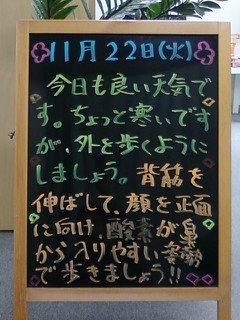 11月22日(火)
今日も良い天気で
す。ちょっと寒いです
が、外を歩くように
しましょう。背筋を
伸ばして、顔を正面
に向け、酸素が鼻
から入りやすい姿勢
で歩きましょう!!